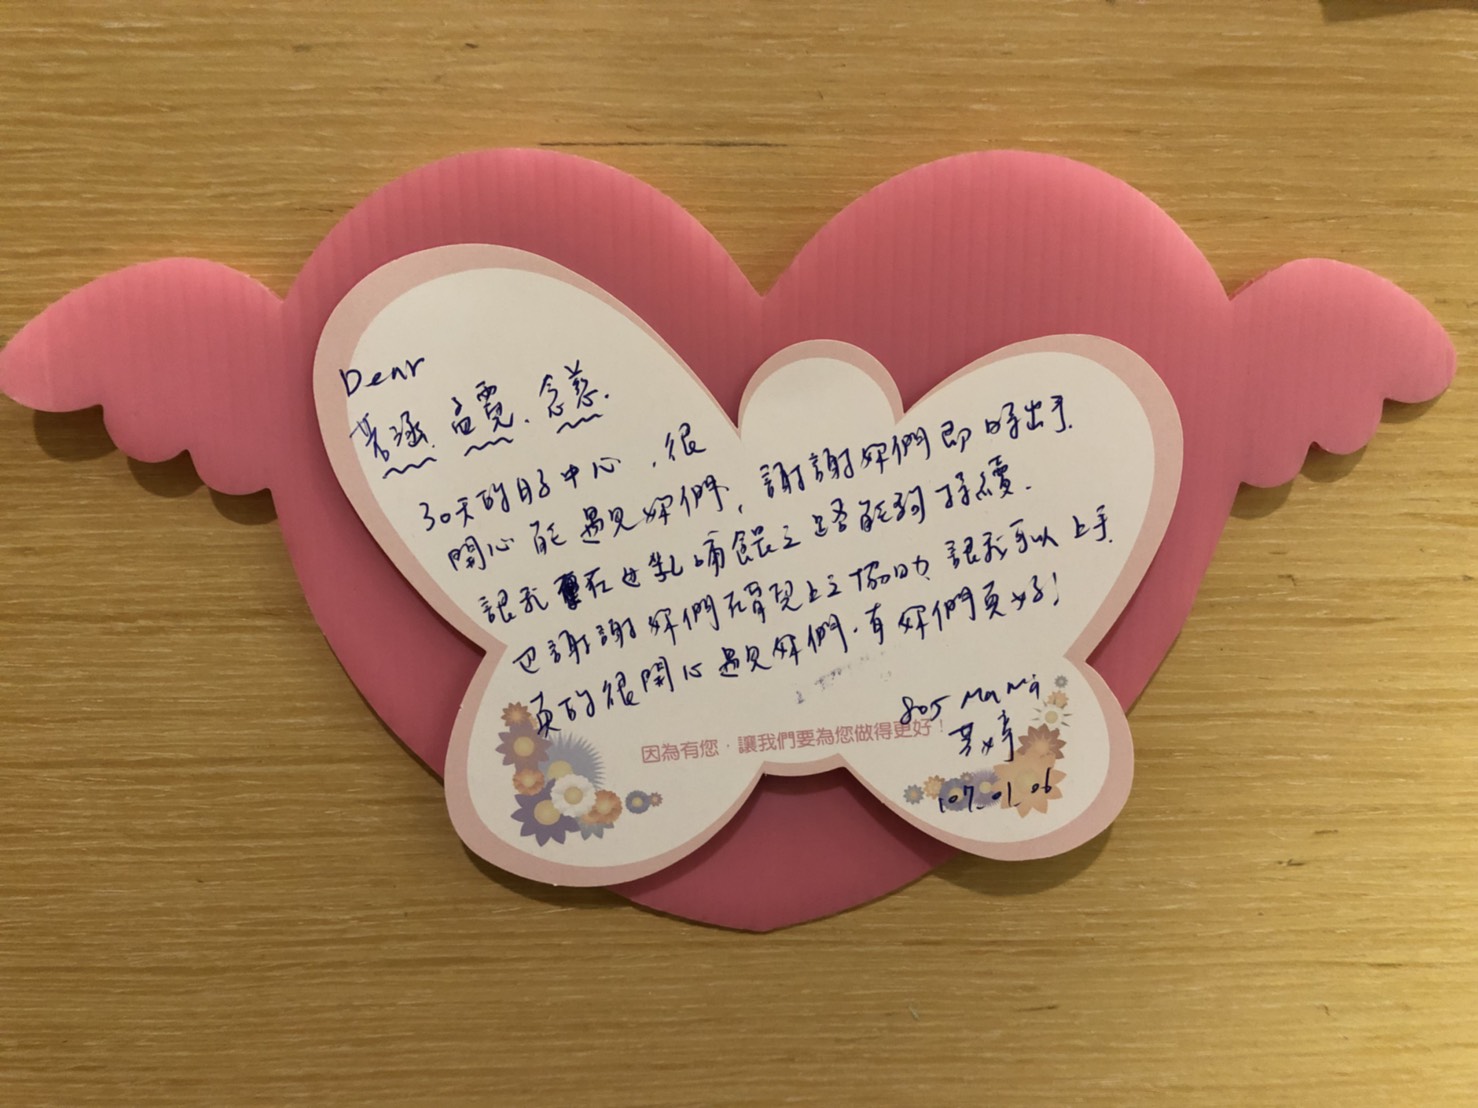 Dear
若涵、孟霓、念慈、
30天的月子中心，很
開心能遇見妳們，謝謝妳們即時出手
讓我在母乳哺餵之路能夠持續．
也謝謝妳們在育兒上之協助，讓我可以上手．
真的很開心遇見妳們．有妳們真好！
805 MaMi
婷
107.01.06
因為有您，讓我們要為您做得更好！